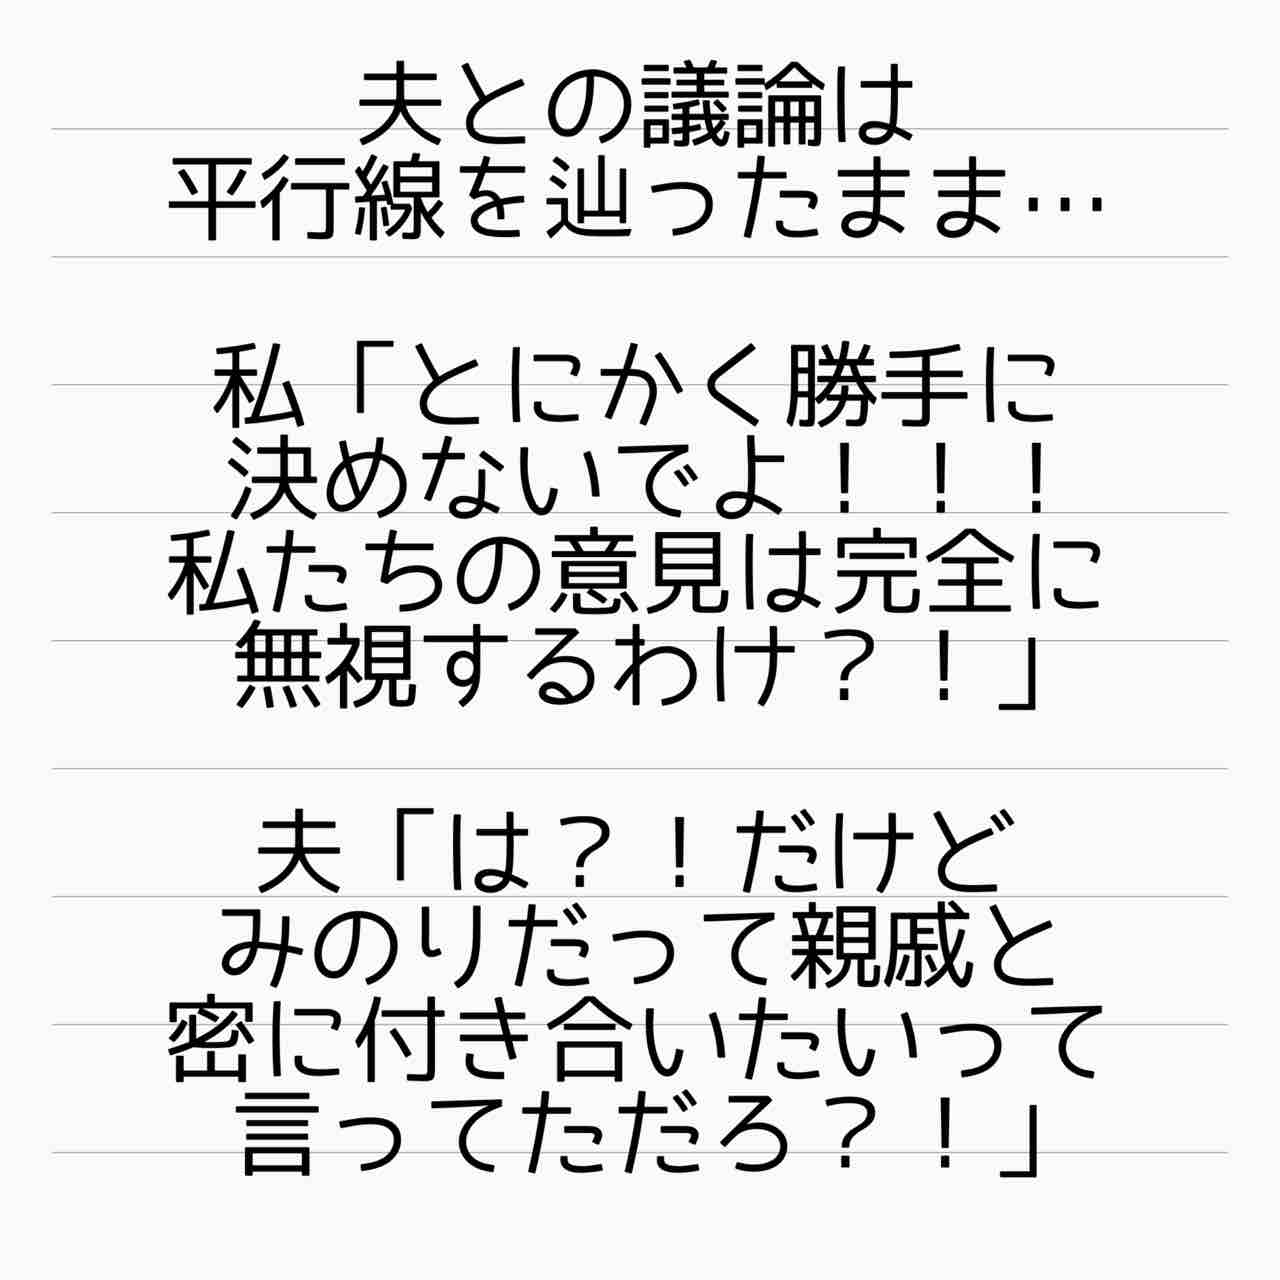 夫との議論は
平行線を辿ったまま…
私「とにかく勝手に
決めないでよ！！！
私たちの意見は完全に
無視するわけ？！」
夫「は？！だけど
みのりだって親戚と
密に付き合いたいって
言ってただろ？！」